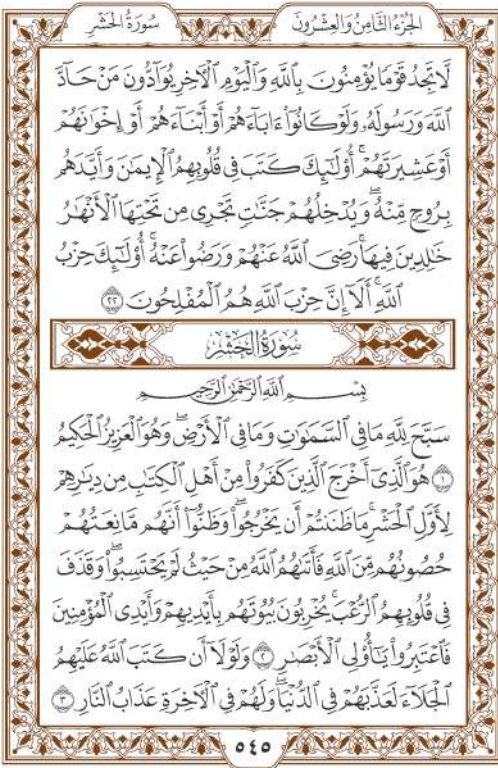 الجزء الثامن والعشرون سورة الحشر
لَّا تَجِدُ قَوْمًا يُؤْمِنُونَ بِاللَّهِ وَالْيَوْمِ الْآخِرِ يُوَادُّونَ مَنْ حَادَّ
اللَّهَ وَرَسُولَهُ وَلَوْ كَانُوا ءَابَاءَهُمْ أَوْ أَبْنَاءَهُمْ أَوْ إِخْوَٰنَهُمْ
أَوْ عَشِيرَتَهُمْ ۚ أُولَٰئِكَ كَتَبَ فِي قُلُوبِهِمُ الْإِيمَٰنَ وَأَيَّدَهُم
بِرُوحٍ مِّنْهُ ۖ وَيُدْخِلُهُمْ جَنَّٰتٍ تَجْرِي مِن تَحْتِهَا الْأَنْهَٰرُ
خَٰلِدِينَ فِيهَا ۚ رَضِيَ اللَّهُ عَنْهُمْ وَرَضُوا عَنْهُ ۚ أُولَٰئِكَ حِزْبُ
اللَّهِ ۚ أَلَا إِنَّ حِزْبَ اللَّهِ هُمُ الْمُفْلِحُونَ ٢٢
سُورَةُ الحَشْرِ
بِسْمِ اللَّهِ الرَّحْمَٰنِ الرَّحِيمِ
سَبَّحَ لِلَّهِ مَا فِي السَّمَٰوَٰتِ وَمَا فِي الْأَرْضِ ۖ وَهُوَ الْعَزِيزُ الْحَكِيمُ
١ هُوَ الَّذِي أَخْرَجَ الَّذِينَ كَفَرُوا مِنْ أَهْلِ الْكِتَٰبِ مِن دِيَٰرِهِمْ
لِأَوَّلِ الْحَشْرِ ۚ مَا ظَنَنتُمْ أَن يَخْرُجُوا ۖ وَظَنُّوا أَنَّهُم مَّانِعَتُهُمْ
حُصُونُهُم مِّنَ اللَّهِ فَأَتَىٰهُمُ اللَّهُ مِنْ حَيْثُ لَمْ يَحْتَسِبُوا ۖ وَقَذَفَ
فِي قُلُوبِهِمُ الرُّعْبَ ۚ يُخْرِبُونَ بُيُوتَهُم بِأَيْدِيهِمْ وَأَيْدِي الْمُؤْمِنِينَ
فَاعْتَبِرُوا يَٰأُولِي الْأَبْصَٰرِ ٢ وَلَوْلَا أَن كَتَبَ اللَّهُ عَلَيْهِمُ
الْجَلَاءَ لَعَذَّبَهُمْ فِي الدُّنْيَا ۖ وَلَهُمْ فِي الْآخِرَةِ عَذَابُ النَّارِ ٣
٥٤٥